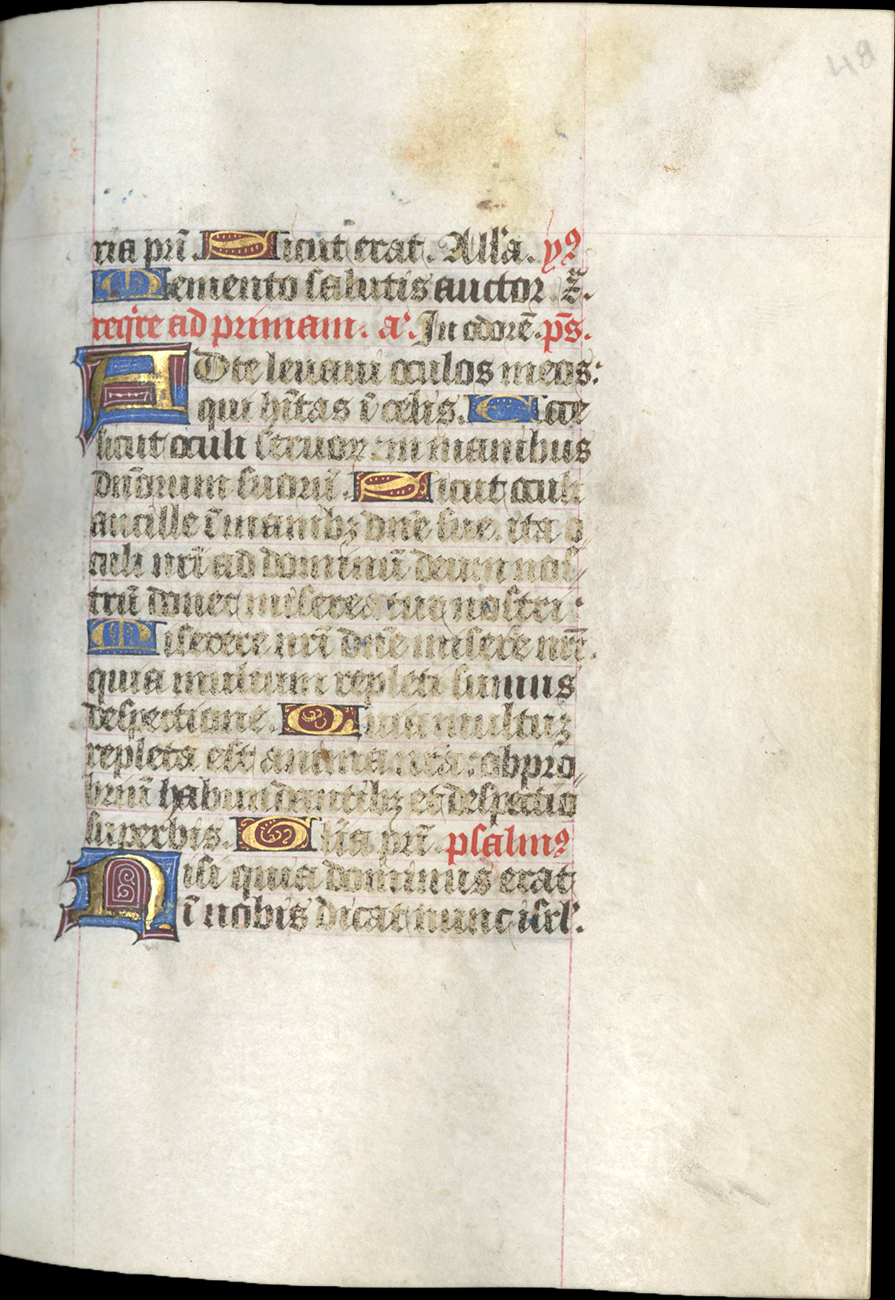 48
ria pri̅. Sicut erat. All'a. yꝰ
Memento salutis auctor. ⁊̅.
req̅re ad primam. a̅. In odore̅. ps̅.
AD te levavi oculos meos:
qui hi̅tas i̅ celis. Ecce
sicut oculi servoꝝ in manibus
dn̅orum suoru̅. Sicut oculi
ancille i̅ manibꝫ dn̅e sue. ita o
culi nr̅i ad dominu̅ deum nos
tru̅ donec misereatur nostri:
Miserere nr̅i dn̅e misere̅ nr̅i.
quia multum repleti sumus
despectione. Quia multuꝫ
repleta est anima nr̅a: obpro
briu̅ habundantibꝫ et despectio
superbis. Gl̅ia pri̅. psalmꝰ
Nisi quia dominus erat
i̅ nobis dicat nunc isrl'.